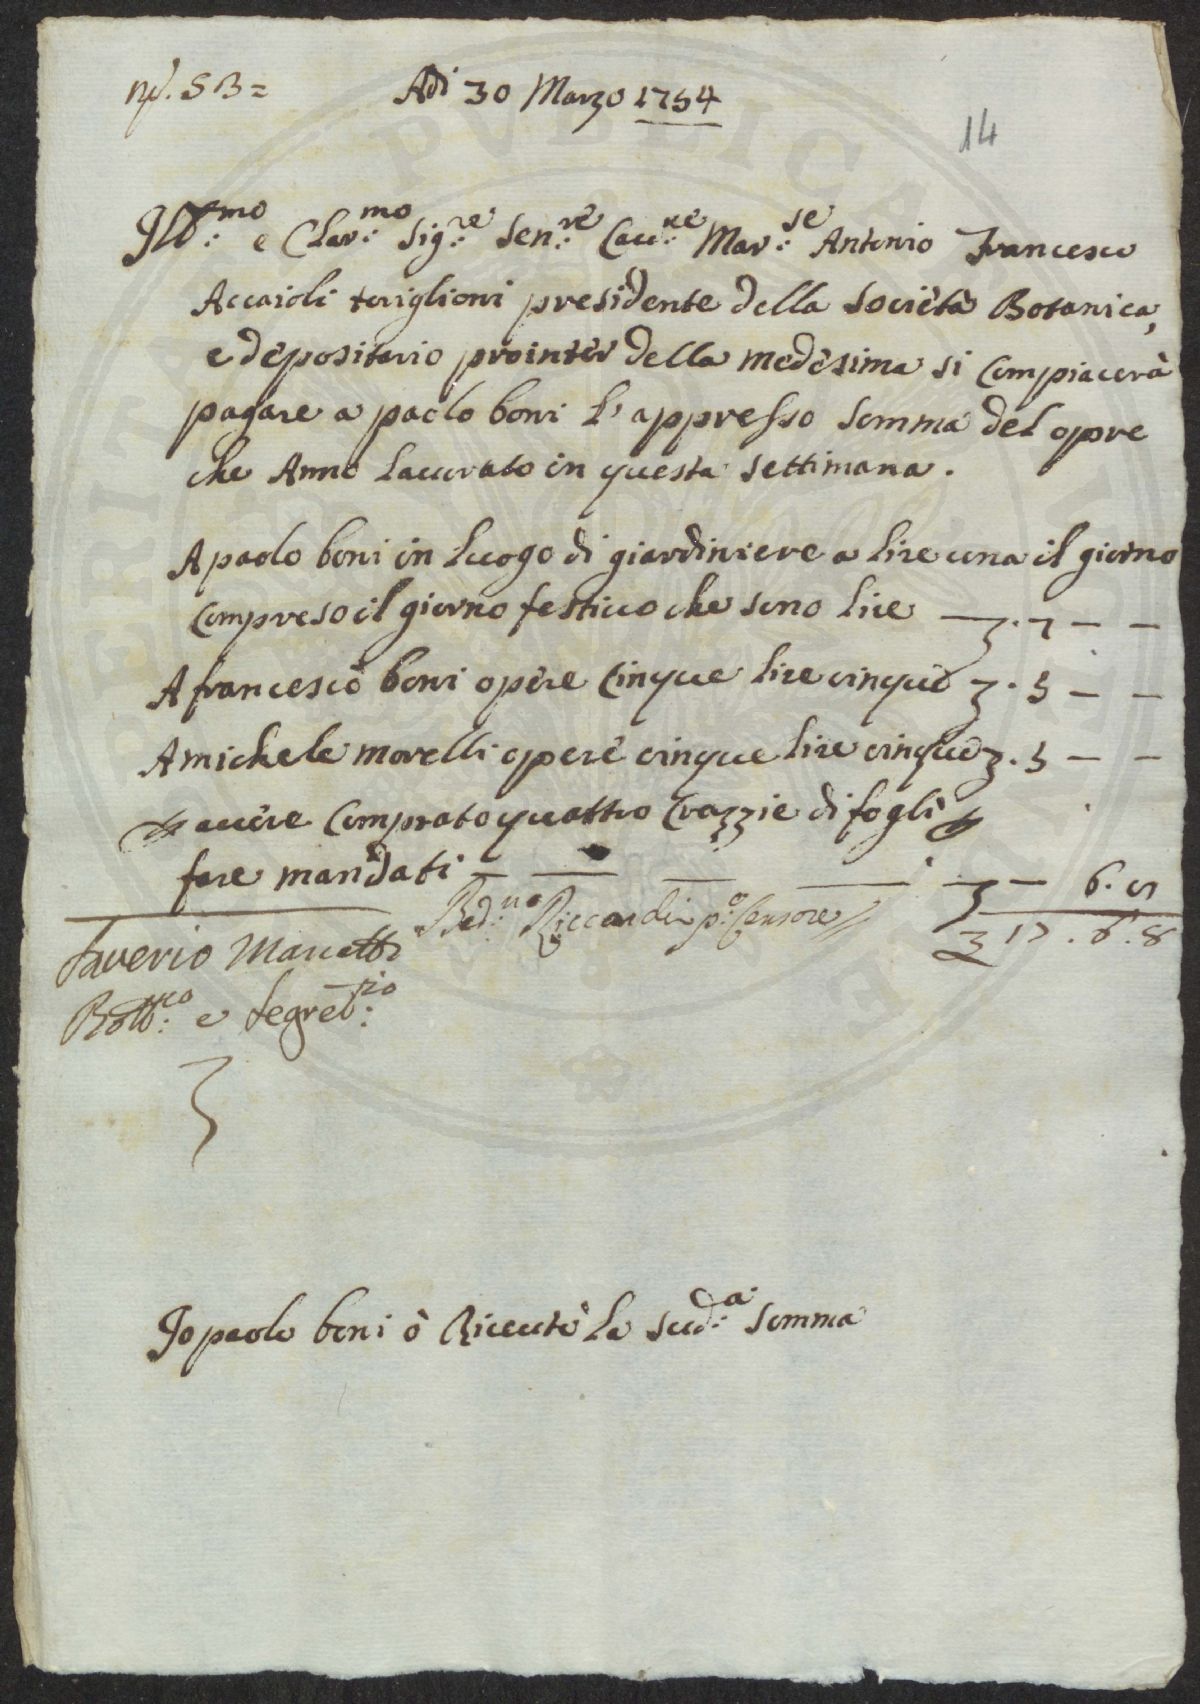 N.º 53 =
Adi 30 Marzo 1754
14
Ill.mo e Clar.mo Sig.re Sen.re Cau.re Mar.se Antonio Francesco
Accaioli toriglioni presidente della Società Botanica,
e depositario prointer della medesima si Compiacerà
pagare a paolo boni l'appresso somma del opre
che Anno lauorato in questa settimana.
A paolo boni in luogo di giardiniere a lire una il giorno
Compreso il giorno festiuo che sono lire — 7 — —
A francesco boni opere Cinque lire cinque . 5 — —
A michele morelli opere cinque lire cinque . 5 — —
auere Comprato quattro Crazzie di fogli
fare mandati — — — — 6. 8
17. 6. 8
Bed.tto Riccardi p.o Censore
Saverio Manetti
Bott.co e Segret.rio
Io paolo boni ò Riceuto la sud.a somma